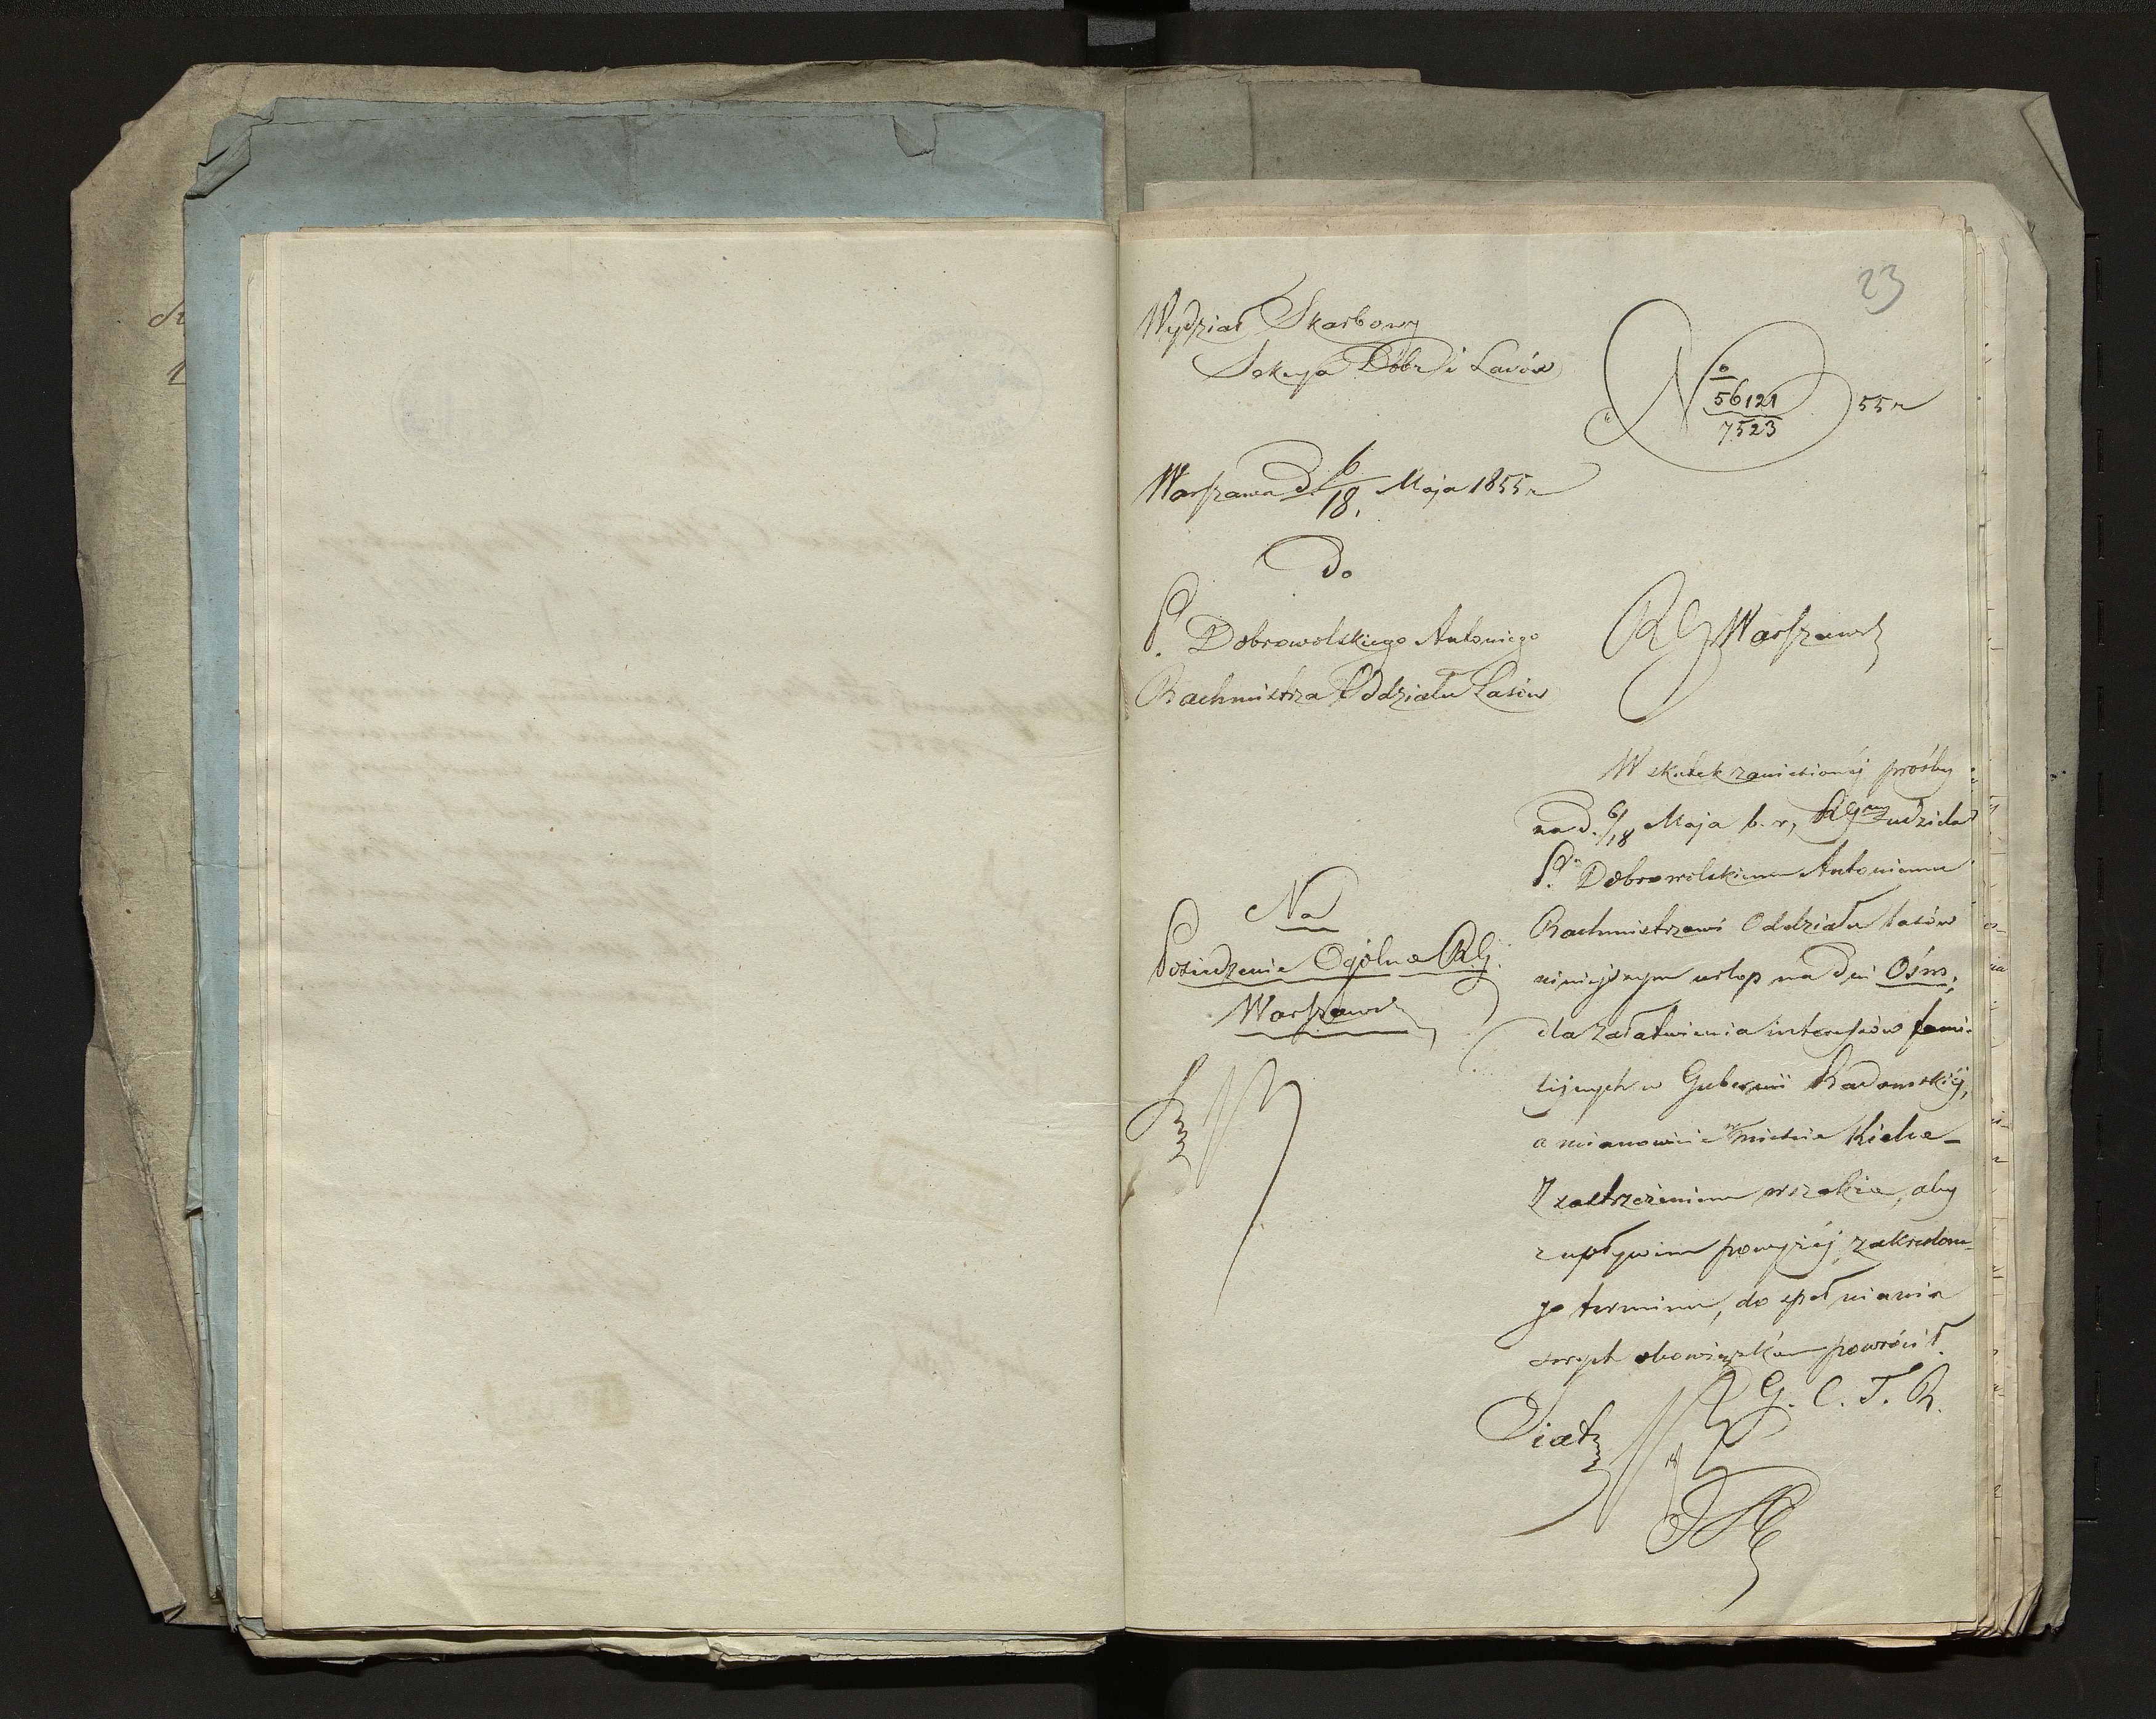 23
Wydział Skarbowy
Sekcya Dóbr i Lasów
No 56121/7523 55 r
Warszawa d 6/18. Maja 1855 r
Do
P. Dobrowolskiego Antoniego
Rachmistrza Oddziału Lasów
RG Warszawsk
W skutek zaniesionéj prośby
na d. 6/18 Maja b. r, RG udziela
P. Dobrowolskiemu Antoniemu
Rachmistrzowi Oddziału lasów
niniejszym urlop na dni Ośm,
dla załatwienia interessów fami-
lijnych w Gubernii Radomskiéj,
a mianowicie w mieście Kielce –
Z zastrzeżeniem wszakże, aby
z upływem powyżéj zakreślone-
go terminu, do spełniania
swych obowiązków powrócił.
Na
Posiedzenie Ogólne RG.
Warszawsk
G. C. T. R.